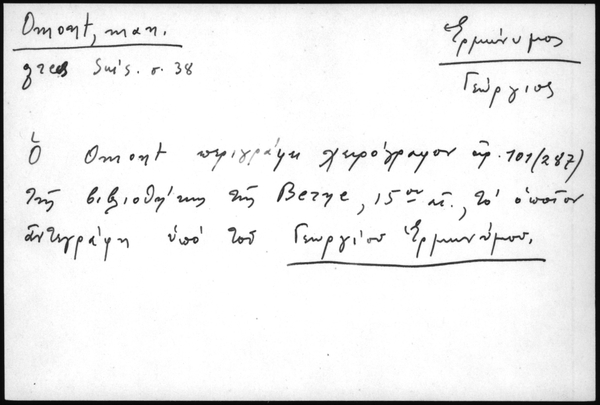 Omont, man.
grecs Suis. σ. 38
Ἑρμώνυμος
Γεώργιος
Ὁ Omont περιγράφει χειρόγραφον ἀρ. 101 (287)
τῆς βιβλιοθήκης τῆς Berne, 15ου αἰ., τὸ ὁποῖον
ἀντεγράφη ὑπὸ τοῦ Γεωργίου Ἑρμωνύμου.